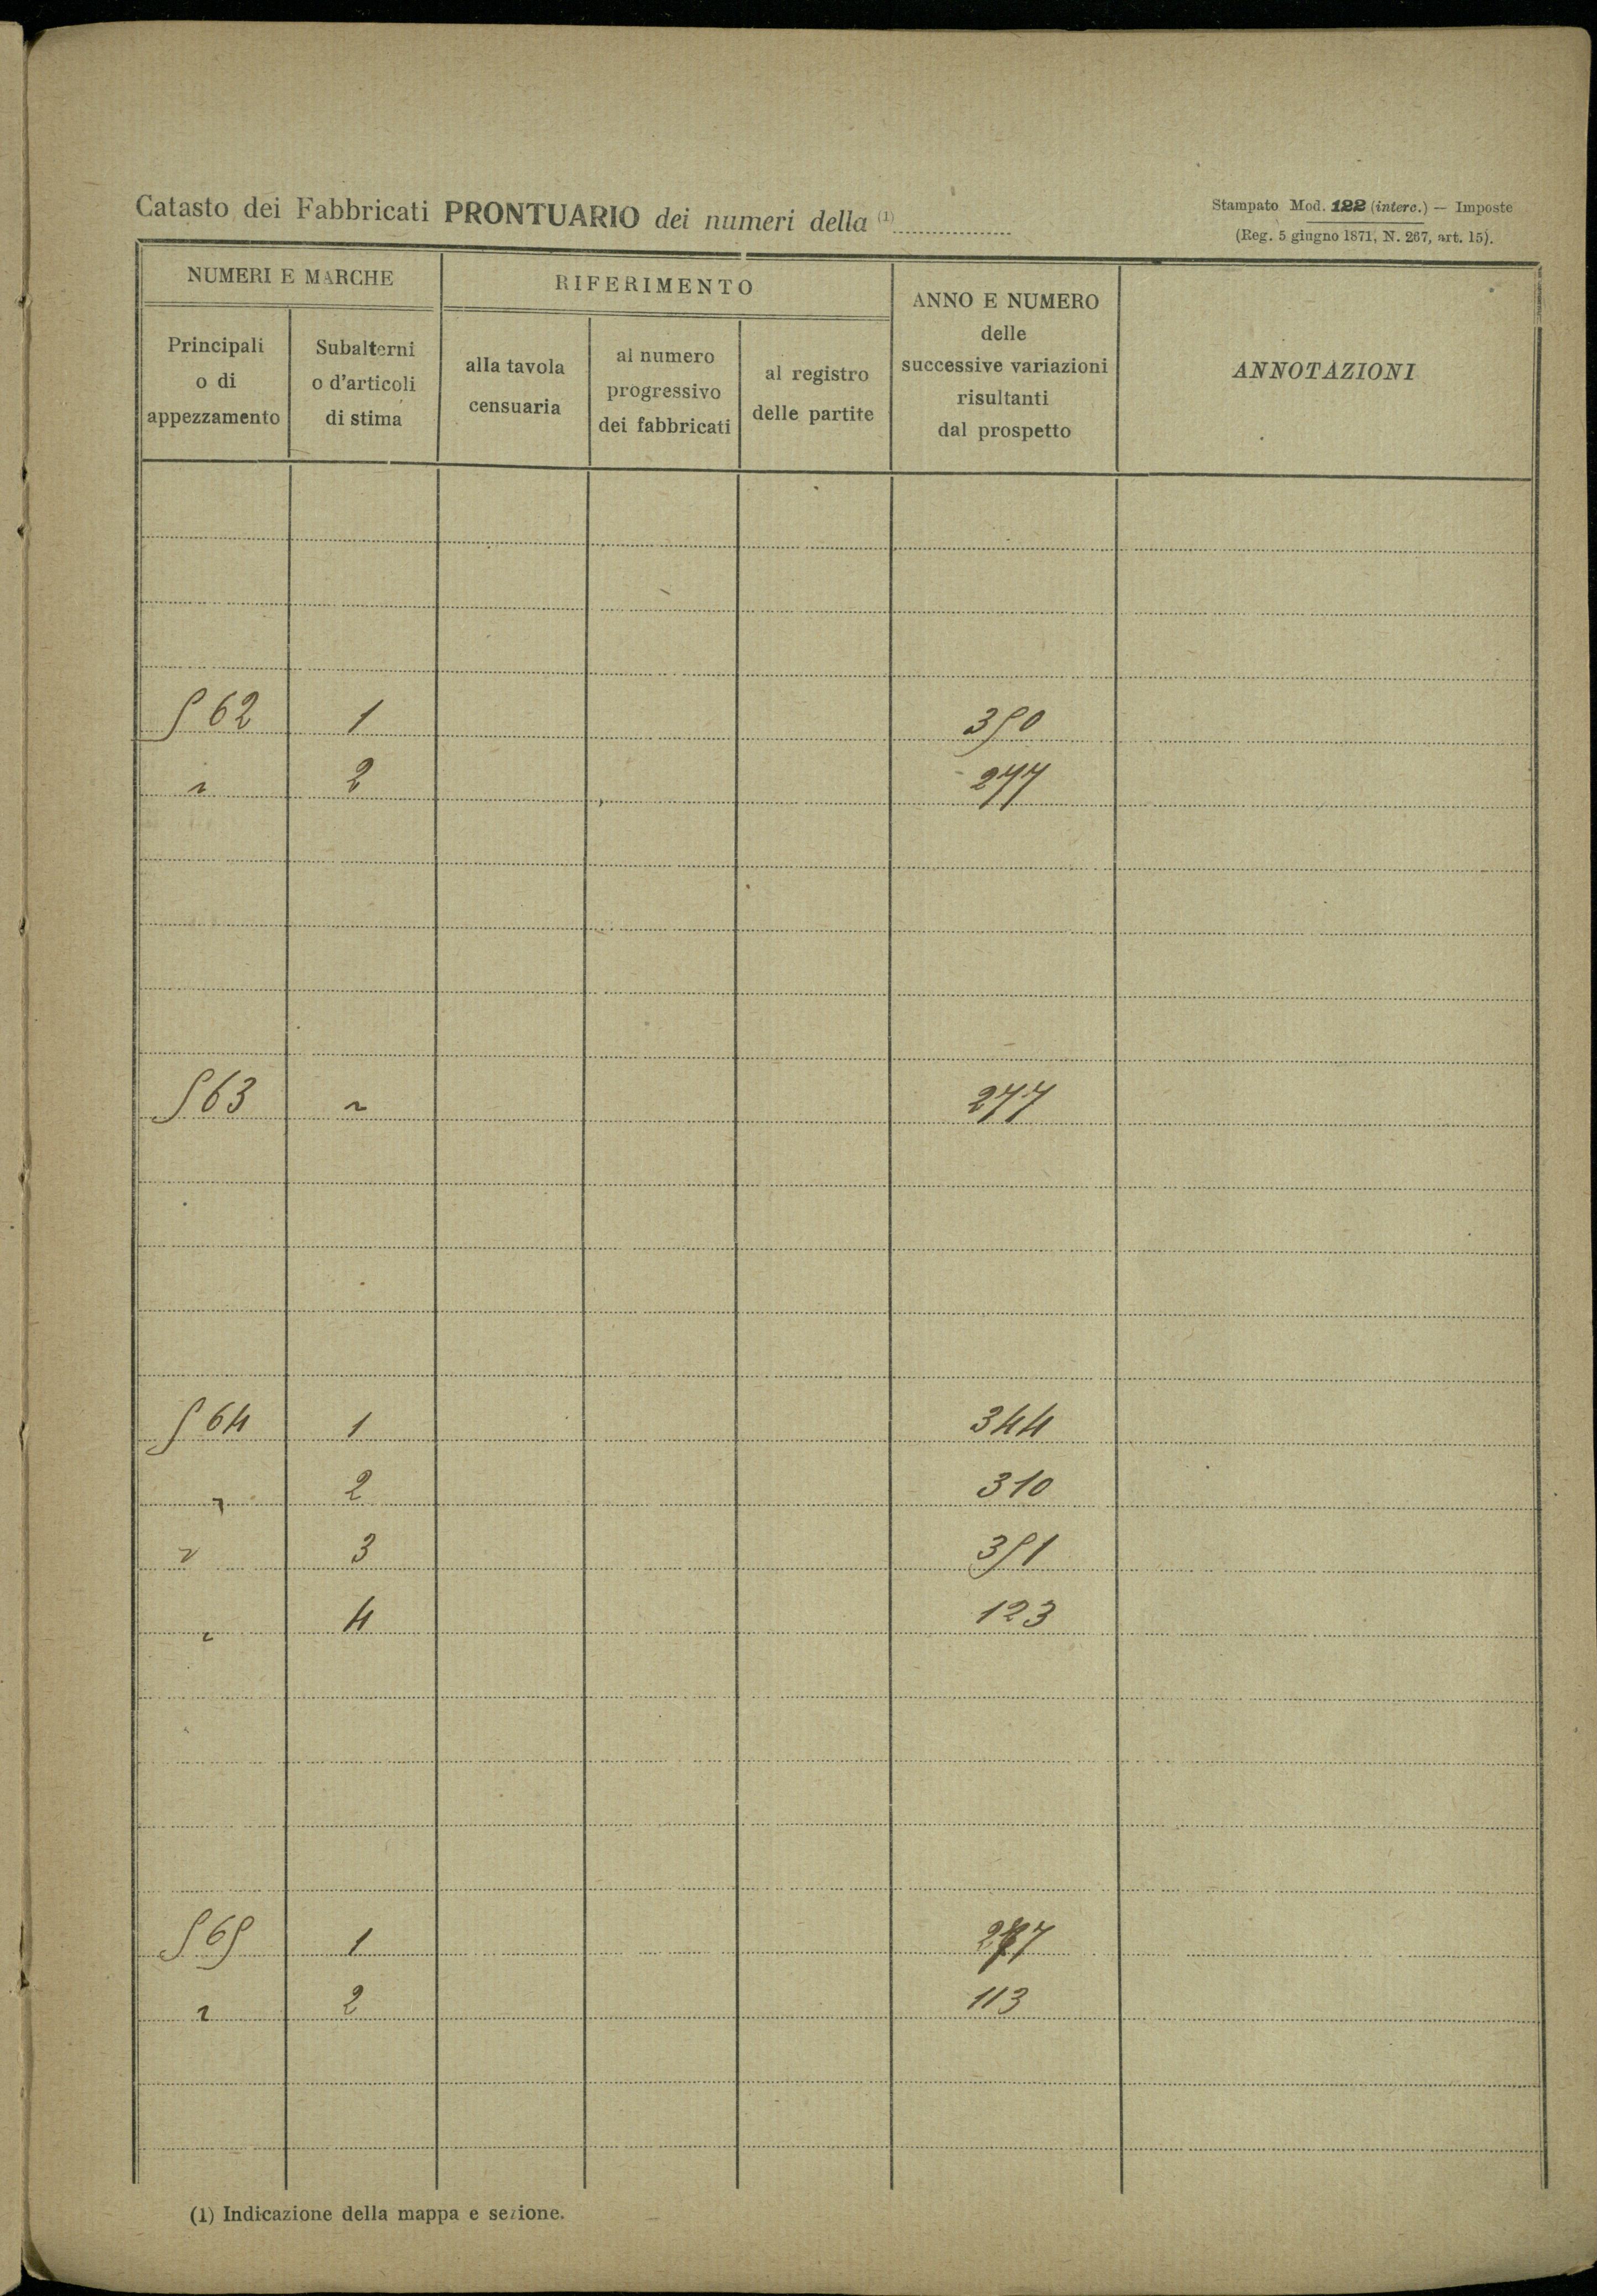 Catasto dei Fabbricati PRONTUARIO dei numeri della (1)
Stampato Mod. 122 (interc.) — Imposte
(Reg. 5 giugno 1871, N. 267, art. 15).
NUMERI E MARCHE
RIFERIMENTO
ANNO E NUMERO
delle
successive variazioni
risultanti
dal prospetto
ANNOTAZIONI
Principali
o di
appezzamento
Subalterni
o d'articoli
di stima
alla tavola
censuaria
al numero
progressivo
dei fabbricati
al registro
delle partite
562 1 350
" 2 277
563 " 277
564 1 344
" 2 310
" 3 351
" 4 123
565 1 277
" 2 113
(1) Indicazione della mappa e sezione.